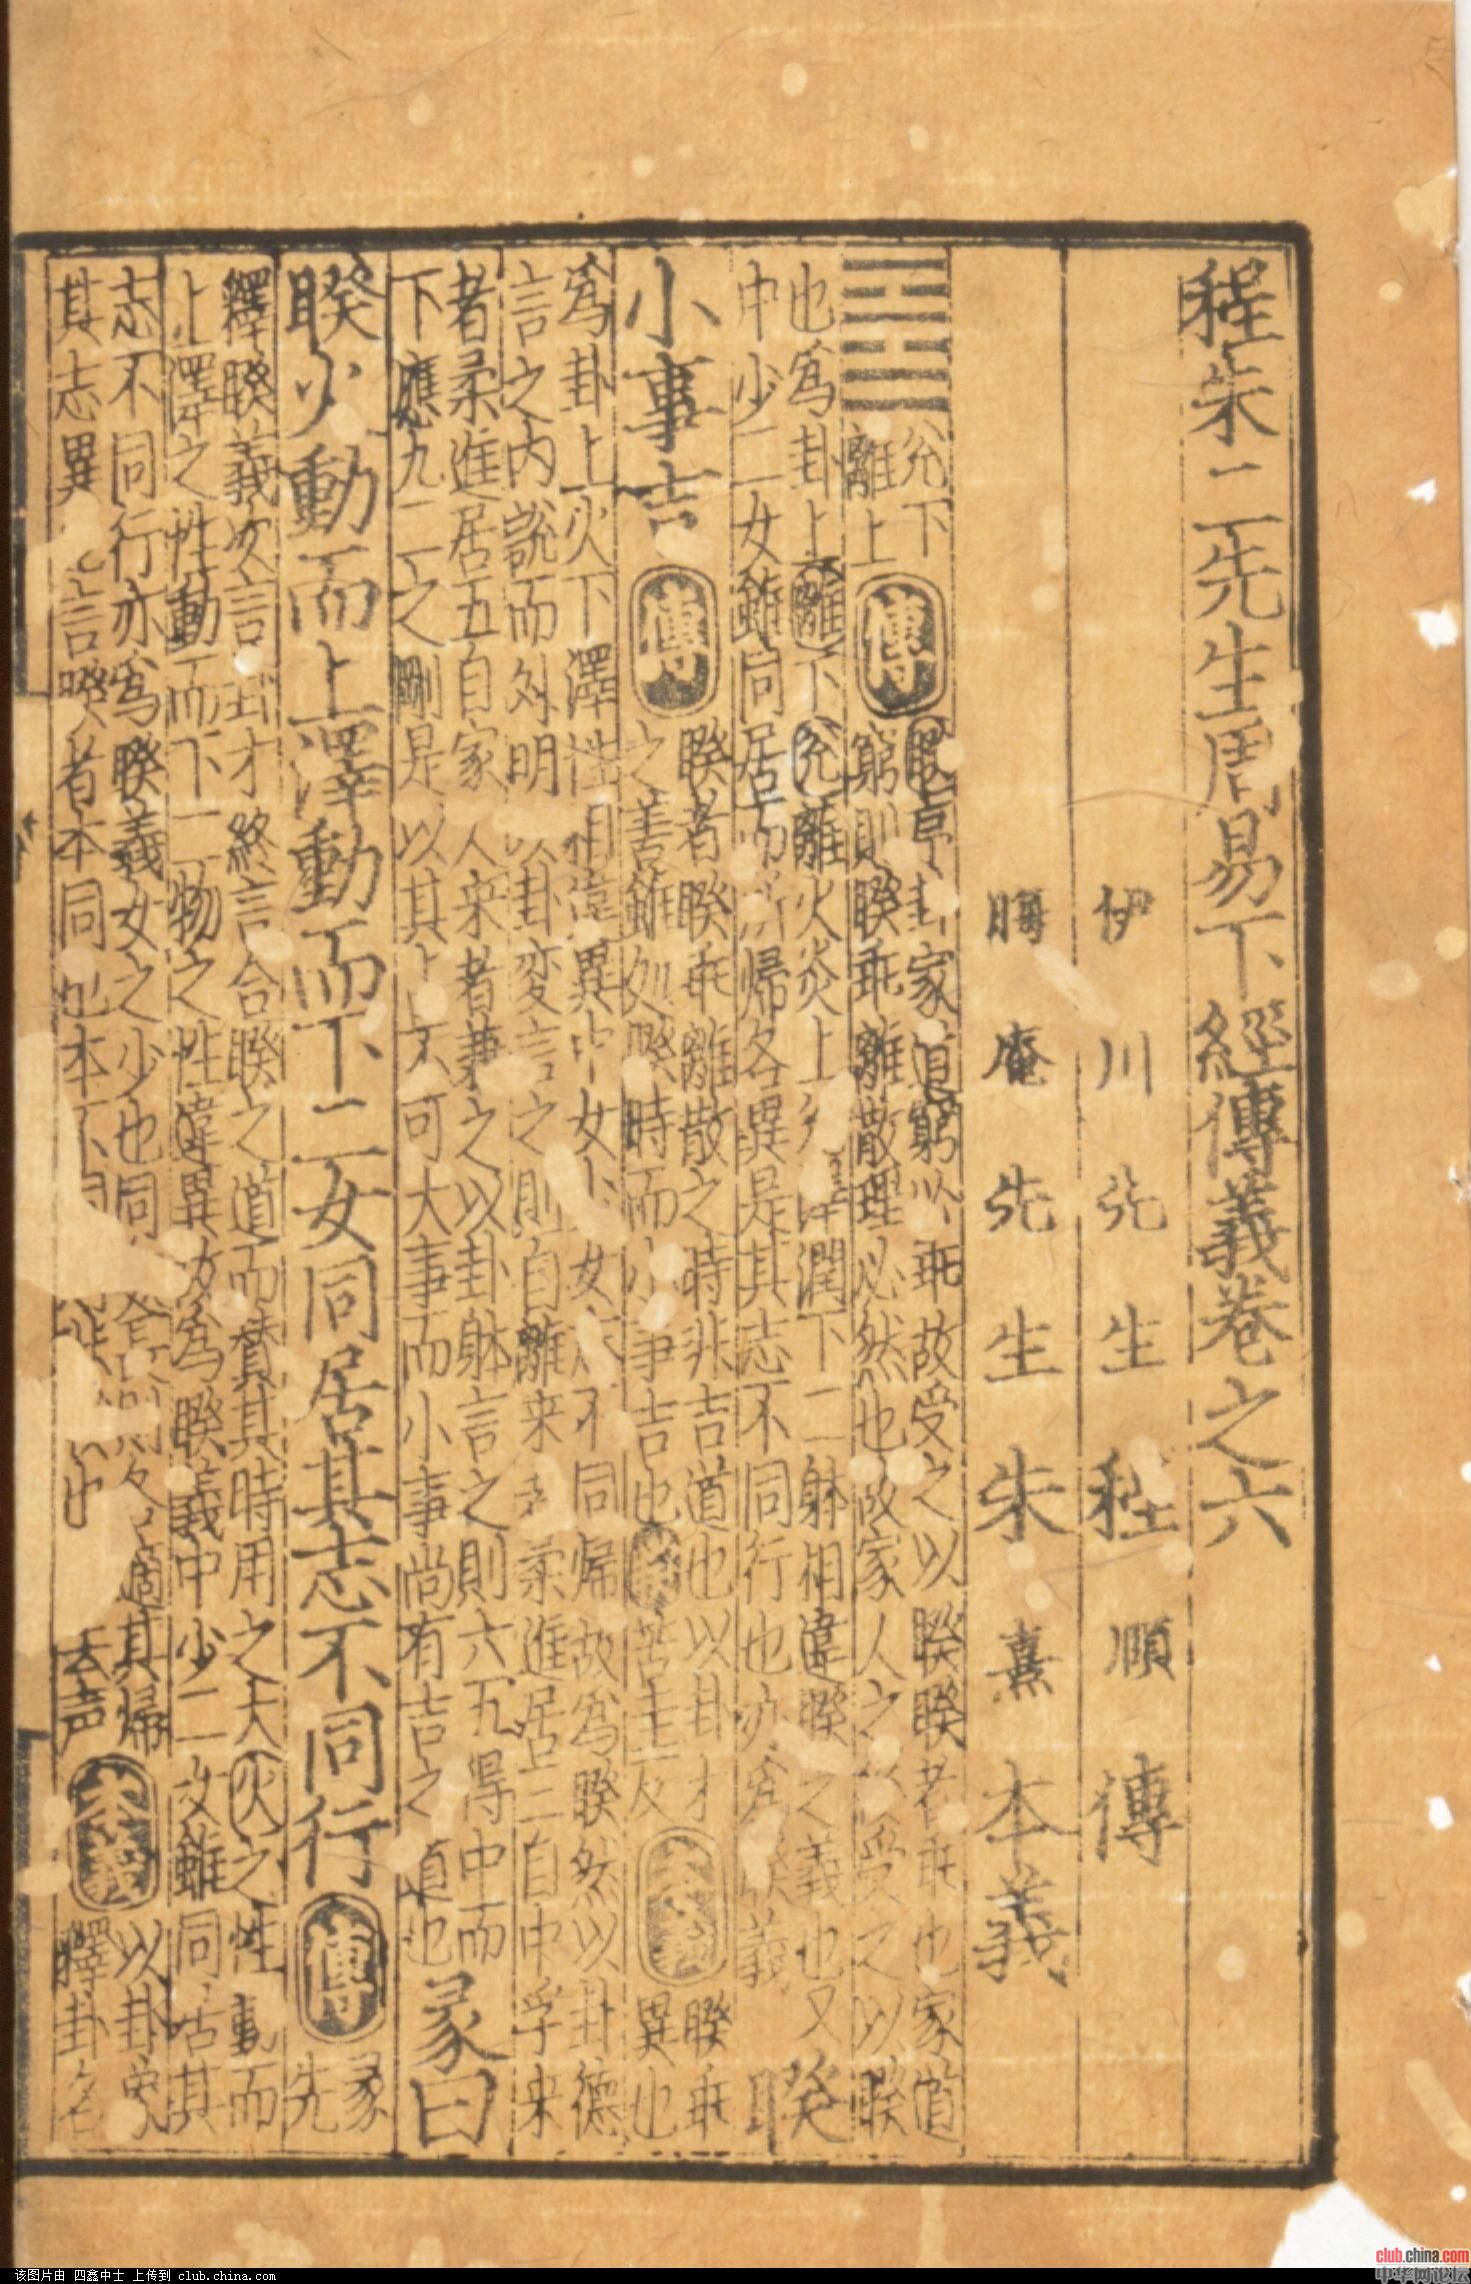 程朱二先生周易下經傳義卷之六
伊川先生程頤傳
晦庵先生朱熹本義
兊下
離上
傳
睽序卦家道窮必乖故受之以睽睽者乖也家道
窮則睽乖離散理必然也故家人之後受之以睽
也爲卦上離下兊離火炎上兊澤潤下二躰相違睽之義也又
中少二女雖同居而所歸各異是其志不同行也亦爲睽義
睽
小事吉
傳
睽者睽乖離散之時非吉道也以卦才
之善雖処睽時而小事吉也
苦圭反
睽乖
異也
爲卦上火下澤性相違異中女少女志不同歸故爲睽然以卦德
言之内說而外明以卦変言之則自離来者柔進居三自中孚来
者柔進居五自家人来者兼之以卦躰言之則六五得中而
下應九二之剛是以其卜不可大事而小事尚有吉之道也
彖曰
睽火動而上澤動而下二女同居其志不同行
傳
彖先
釋睽義次言卦才終言合睽之道而賛其時用之大火之性動而
上澤之性動而下二物之性違異故爲睽義中少二女雖同居其
志不同行亦爲睽義女之少也同 適其歸
其志異 言睽者本同也本不同 也
去声
本義
以卦象
釋卦名
该图片由 四鑫中士 上传到 club.china.com
club.china.com
中华网论坛